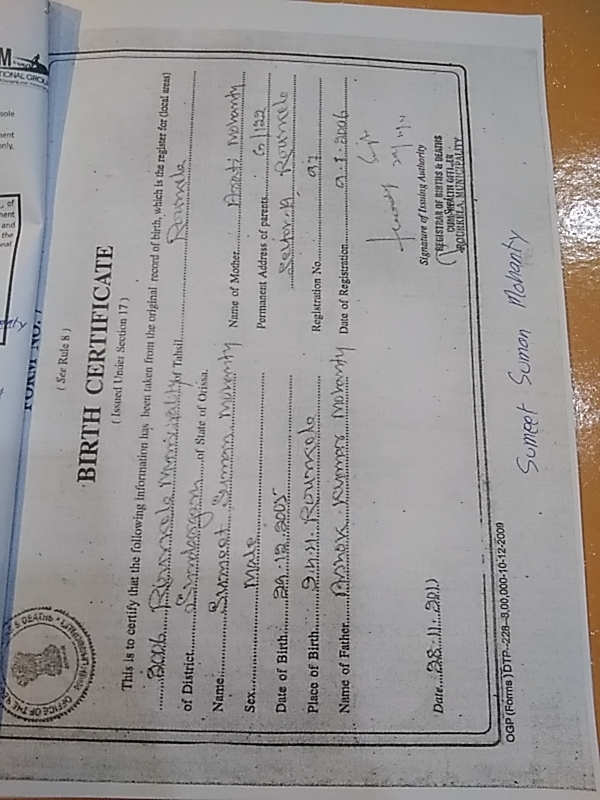 FORM NO. 7
( See Rule 8 )
BIRTH CERTIFICATE
( Issued Under Section 17 )
This is to certify that the following information has been taken from the original record of birth, which is the register for (local areas)
2006 Rourkela Municipality of Tahsil Rourkela
of District Sundargarh of State of Orissa.
Name Sumeet Suman Mohanty Name of Mother Arati Mohanty
Sex Male Permanent Address of parents G/122
Date of Birth 29.12.2005 Sector-
Rourkela
Place of Birth Rourkela Registration No. 97
Name of Father Ashok Kumar Mohanty Date of Registration 9.1.2006
Signature of Issuing Authority
REGISTRAR OF BIRTHS & DEATHS
ROURKELA, MUNICIPALITY
Date 28.11.2011
OGP (Forms ) DTP-228-8,00,000-10-12-2009
Sumeet Suman Mohanty
OFFICE OF THE
DEATHS
M
TIONAL GROU
sole
ment
only,
, of
ment
and
the